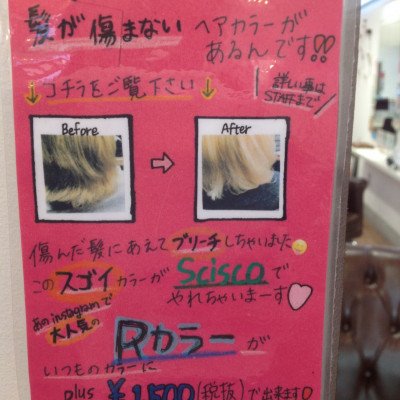 髪が傷まない ヘアカラーが
あるんです!!
↓コチラをご覧下さい↓
詳しい事は
STAFFまで
Before
After
傷んだ髪にあえてブリーチしちゃいました
このスゴイカラーがSciscoで
やれちゃいまーす♡
あのinstagramで
大人気の
Rカラーが
いつものカラーに
plus ¥1,500(税抜)で出来ます♡